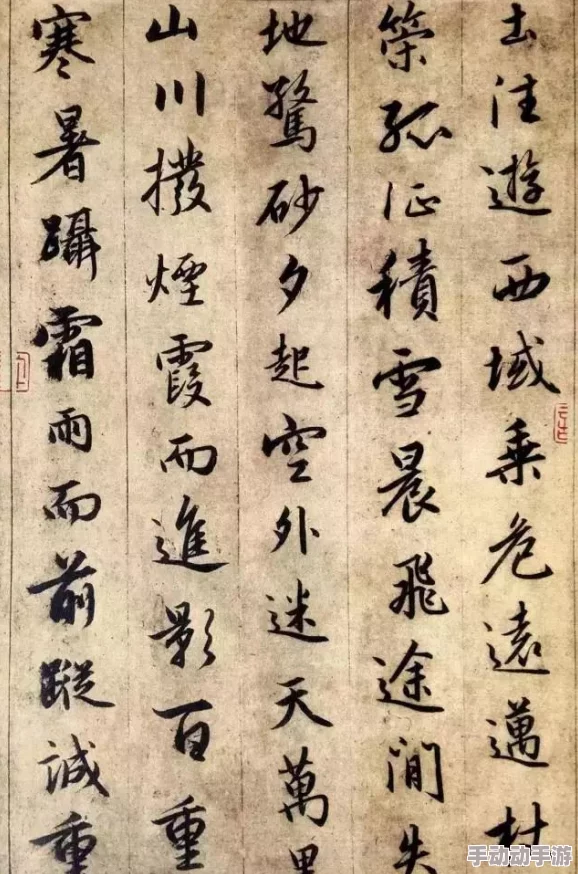 土往遊西域乗危遠邁杖
策孤征積雪晨飛途間失
地驚砂夕起空外迷天萬里
山川撥煙霞而進影百重
寒暑躡霜雨而前蹤誠重
手动动手游